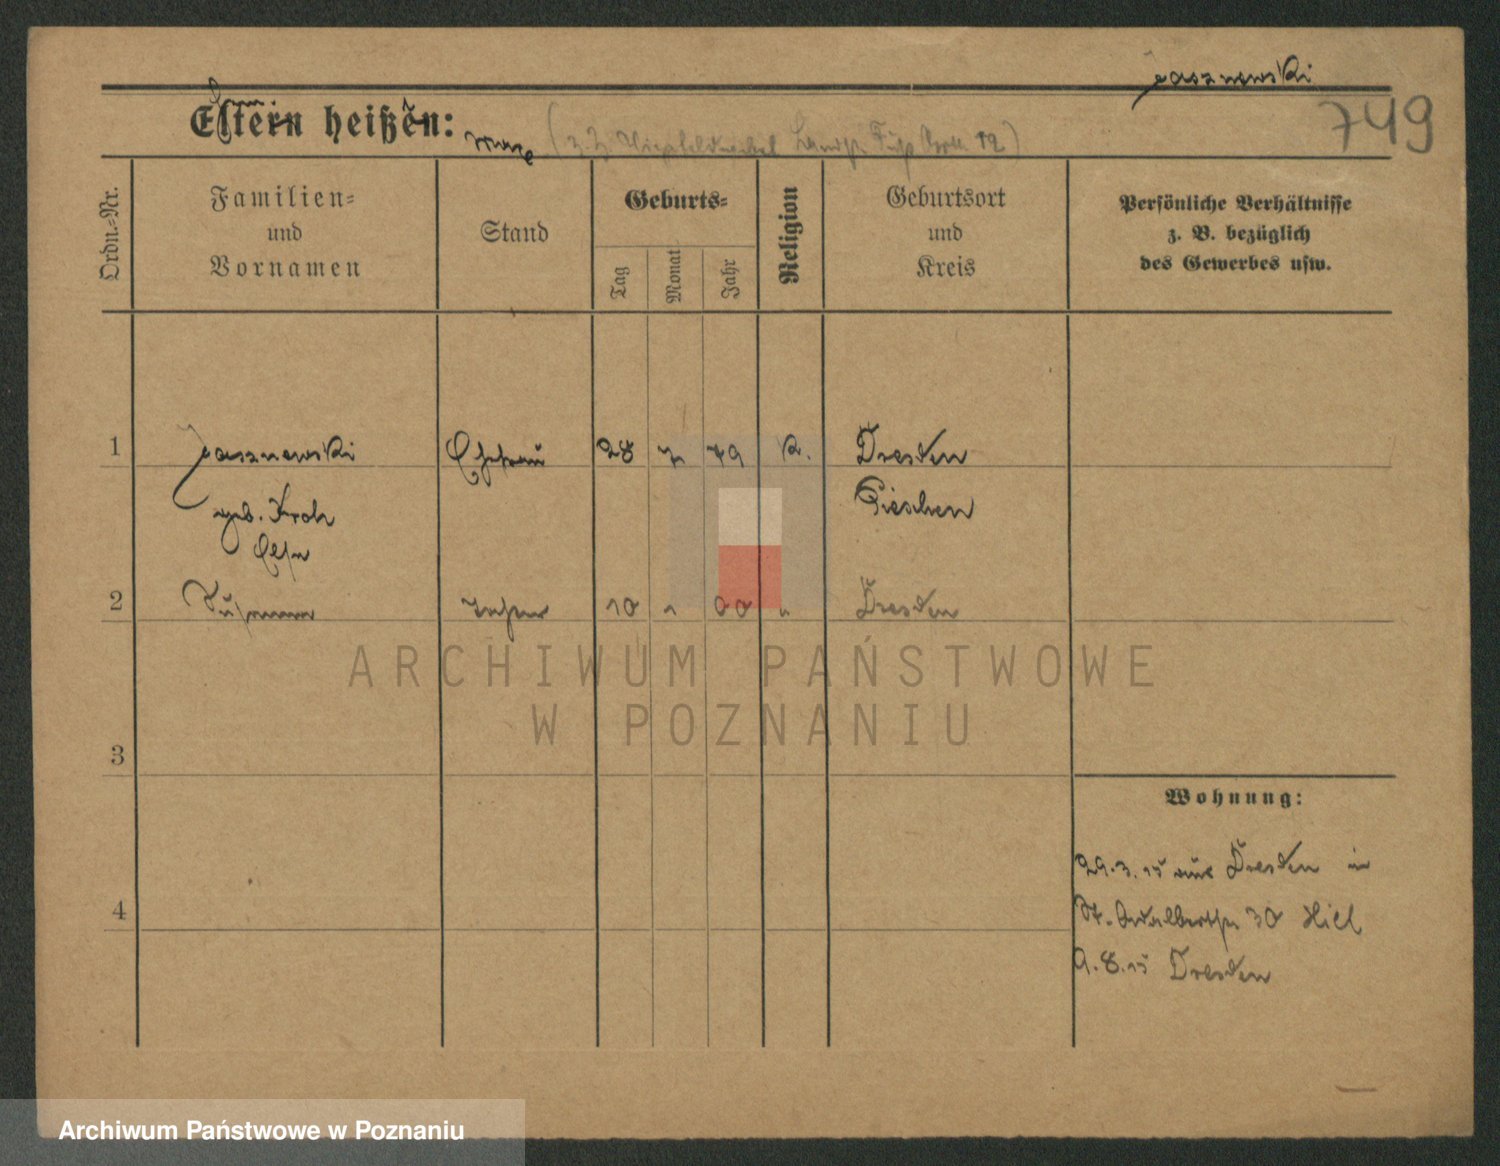 Jasznewski
749
Eltern heißen:
(z. Z. Vizefeldwebel
Ordn.-Nr.
Familien-
und
Vornamen
Stand
Geburts-
Tag
Monat
Jahr
Religion
Geburtsort
und
Kreis
Persönliche Verhältnisse
z. B. bezüglich
des Gewerbes usw.
1 Jasznewski Ehefrau 28 7 79 K. Dresden
geb. Pieschen
Else
2 10 00 " Dresden
ARCHIWUM PAŃSTWOWE
W POZNANIU
3
Wohnung:
29.3.15 aus Dresden in
4
St. Adalbertstr 30
9.8.15 Dresden
Archiwum Państwowe w Poznaniu